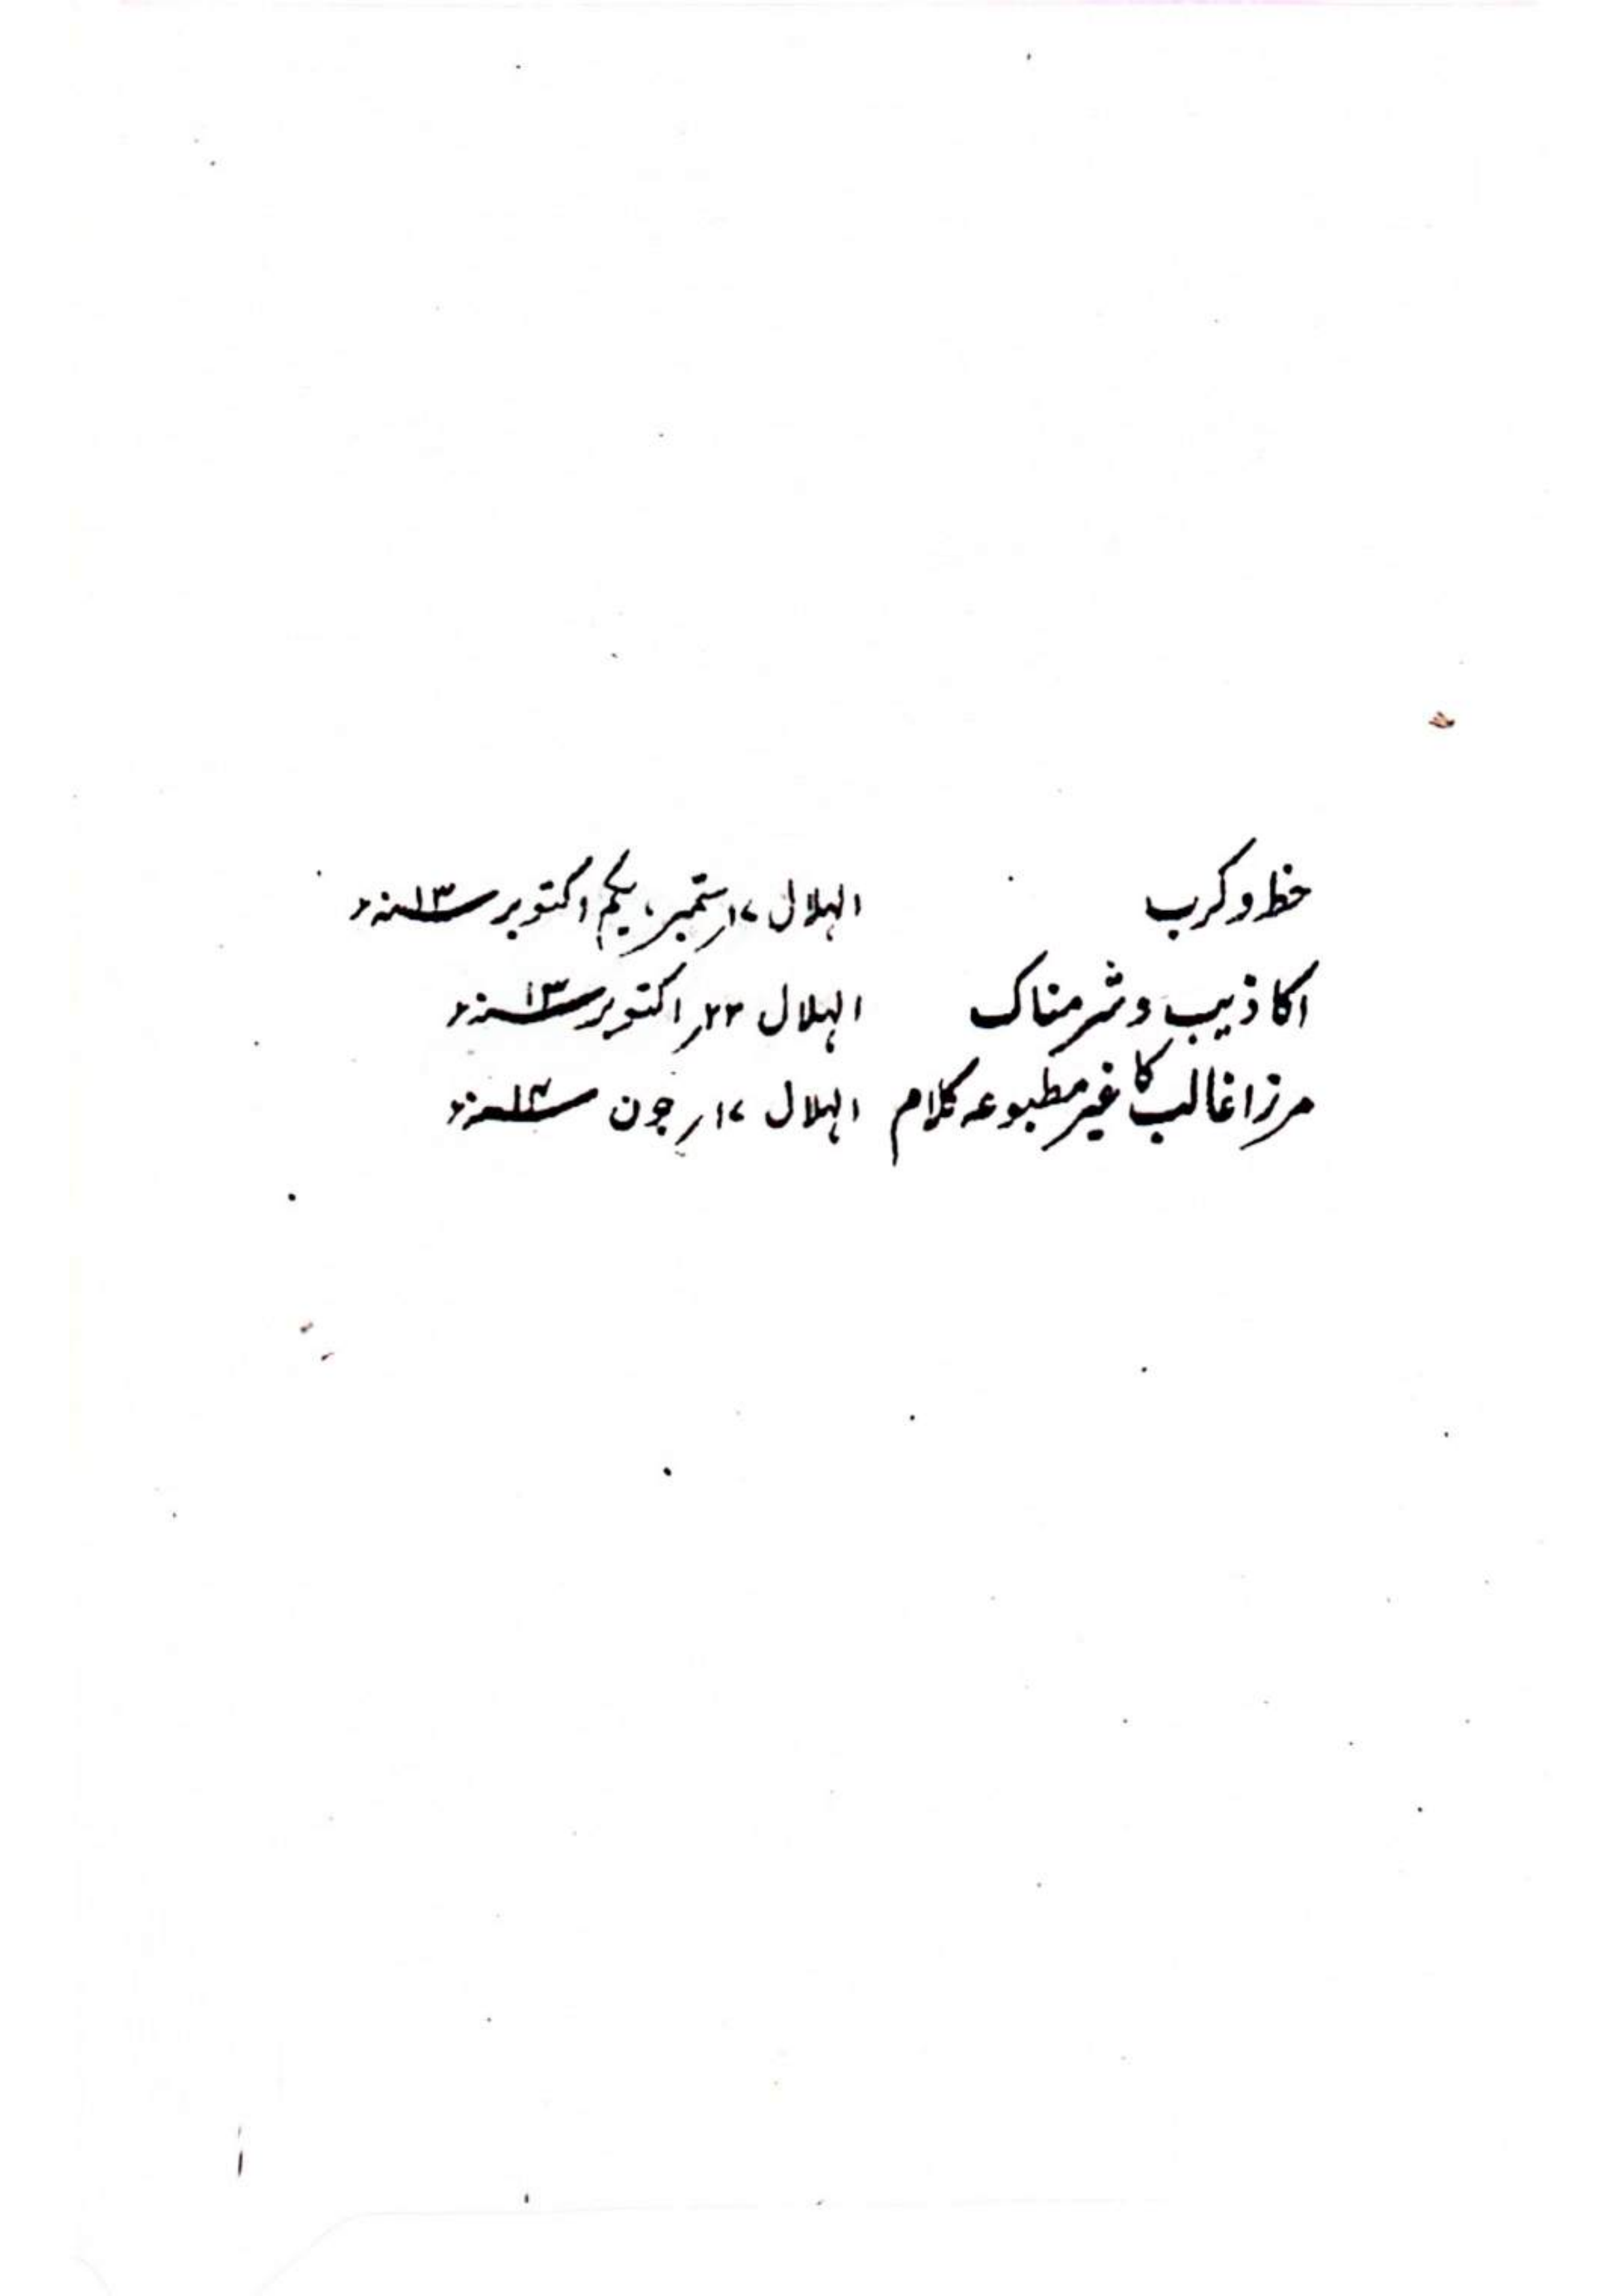 حظ و کرب الہلال ۱۷ ستمبر، یکم اکتوبر ۱۳ء
اکاذیب و شرمناک الہلال ۲۲ اکتوبر ۱۳ء
مرزا غالب کا غیر مطبوعہ کلام الہلال ۱۷ جون ۱۴ء